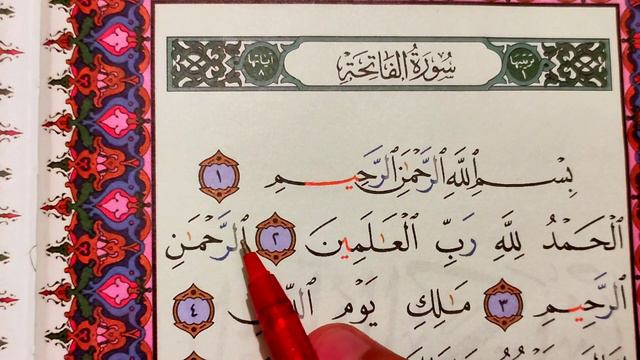 سُورَةُ الفَاتِحَةِ
آياتها
بِسْمِ ٱللَّهِ ٱلرَّحْمَٰنِ ٱلرَّحِيمِ ١
ٱلْحَمْدُ لِلَّهِ رَبِّ ٱلْعَٰلَمِينَ ٢ ٱلرَّحْمَٰنِ
ٱلرَّحِيمِ ٣ مَٰلِكِ يَوْمِ ٤